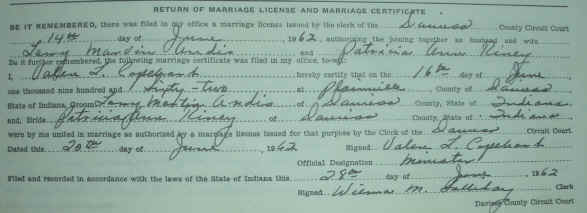 RETURN OF MARRIAGE LICENSE AND MARRIAGE CERTIFICATE
BE IT REMEMBERED, there was filed in my office a marriage license issued by the clerk of the Daviess County Circuit Court
14th day of June, 1962, authorizing the joining together as husband and wife
Larry Martin Andis and Patricia Ann Kincy
Be it further remembered, the following marriage certificate was filed in my office, to-wit:
I, Valen L. Copeland hereby certify that on the 16th day of June,
one thousand nine hundred and sixty-two at Plainville, County of Daviess
State of Indiana, Groom Larry Martin Andis of Daviess County, State of Indiana
and, Bride Patricia Ann Kincy of Daviess County, State of Indiana
were by me united in marriage as authorized by a marriage license issued for that purpose by the Clerk of the Daviess Circuit Court.
Dated this 20th day of June, 1962 Signed Valen L. Copeland
Official Designation Minister
Filed and recorded in accordance with the laws of the State of Indiana this 28th day of June, 1962
Signed Wilma M. Clerk
Daviess County Circuit Court